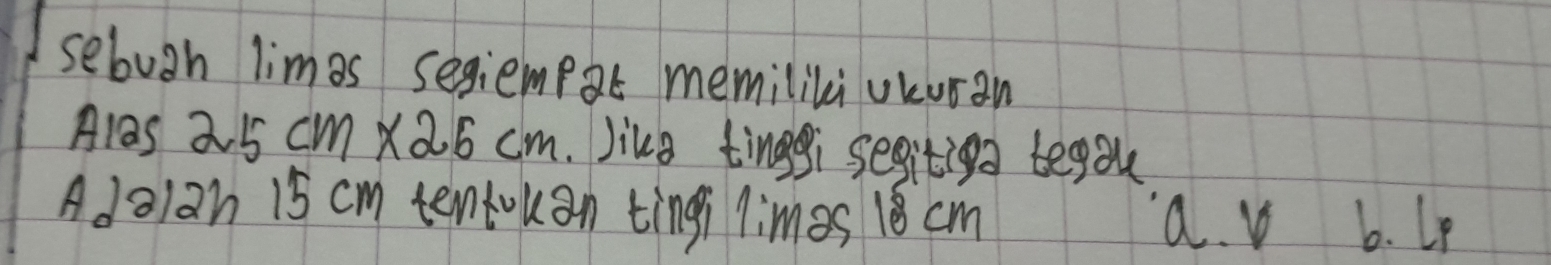 sebuah limas segiempat memiliki ukuran
Alas 25 cm x 25 cm. Jika tinggi segitiga tegak
Adalah 15 cm tentukan tingi limas 18 cm a. V b. Lp